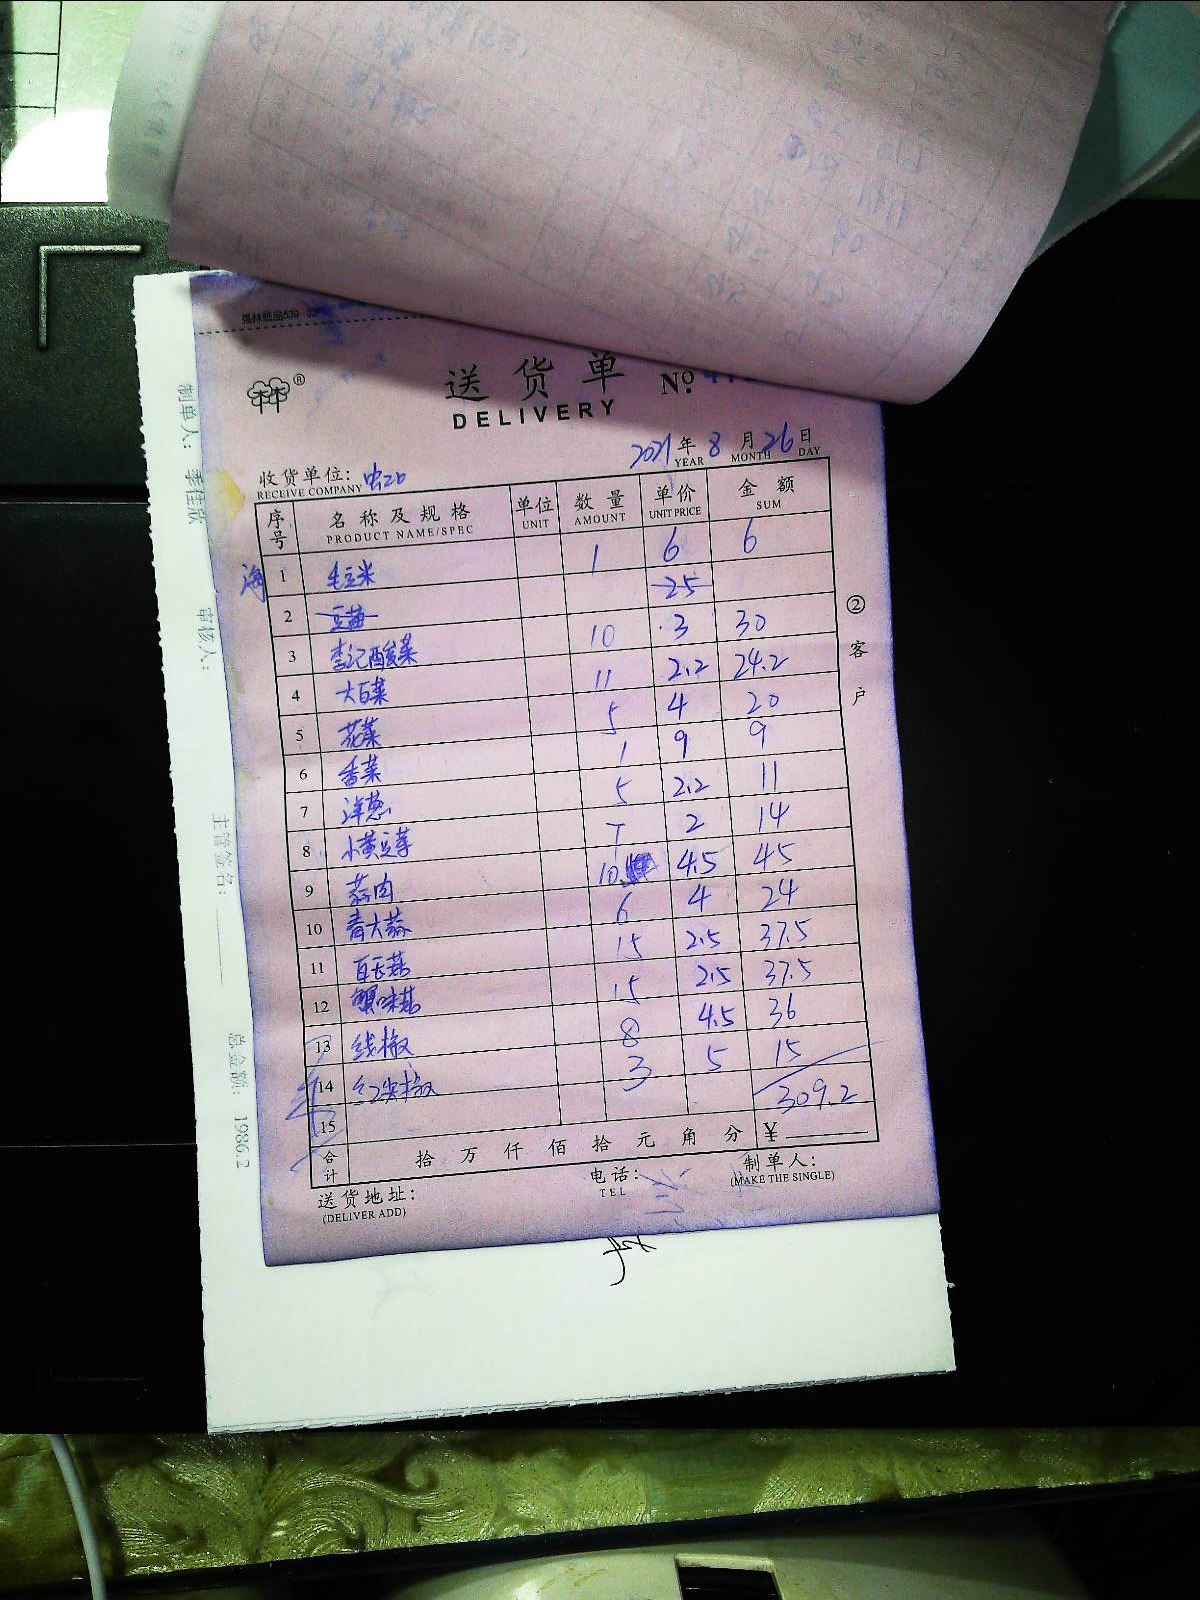 送货单 No.
DELIVERY
2021年 8月 26日
YEAR MONTH DAY
收货单位:
RECEIVE COMPANY
序号 名称及规格 单位 数量 单价 金额
PRODUCT NAME/SPEC UNIT AMOUNT UNIT PRICE SUM
海 1 毛豆米 1 6 6
2 豆苗 25
3 李记酸菜 10 3 30
4 大白菜 11 2.2 24.2
5 花菜 5 4 20
6 香菜 1 9 9
7 洋葱 5 2.2 11
8 小黄豆芽 7 2 14
9 蒜肉 10 4.5 45
10 青大蒜 6 4 24
11 白玉菇 15 2.5 37.5
12 蟹味菇 15 2.5 37.5
13 线椒 8 4.5 36
14 红尖椒 3 5 15
15 309.2
合计 拾万仟佰拾元角分 ¥
送货地址: 电话: 制单人:
(DELIVER ADD) TEL (MAKE THE SINGLE)
②客户
制单人: 李佳欣
审核人:
主管签名:
总金额: 1986.2